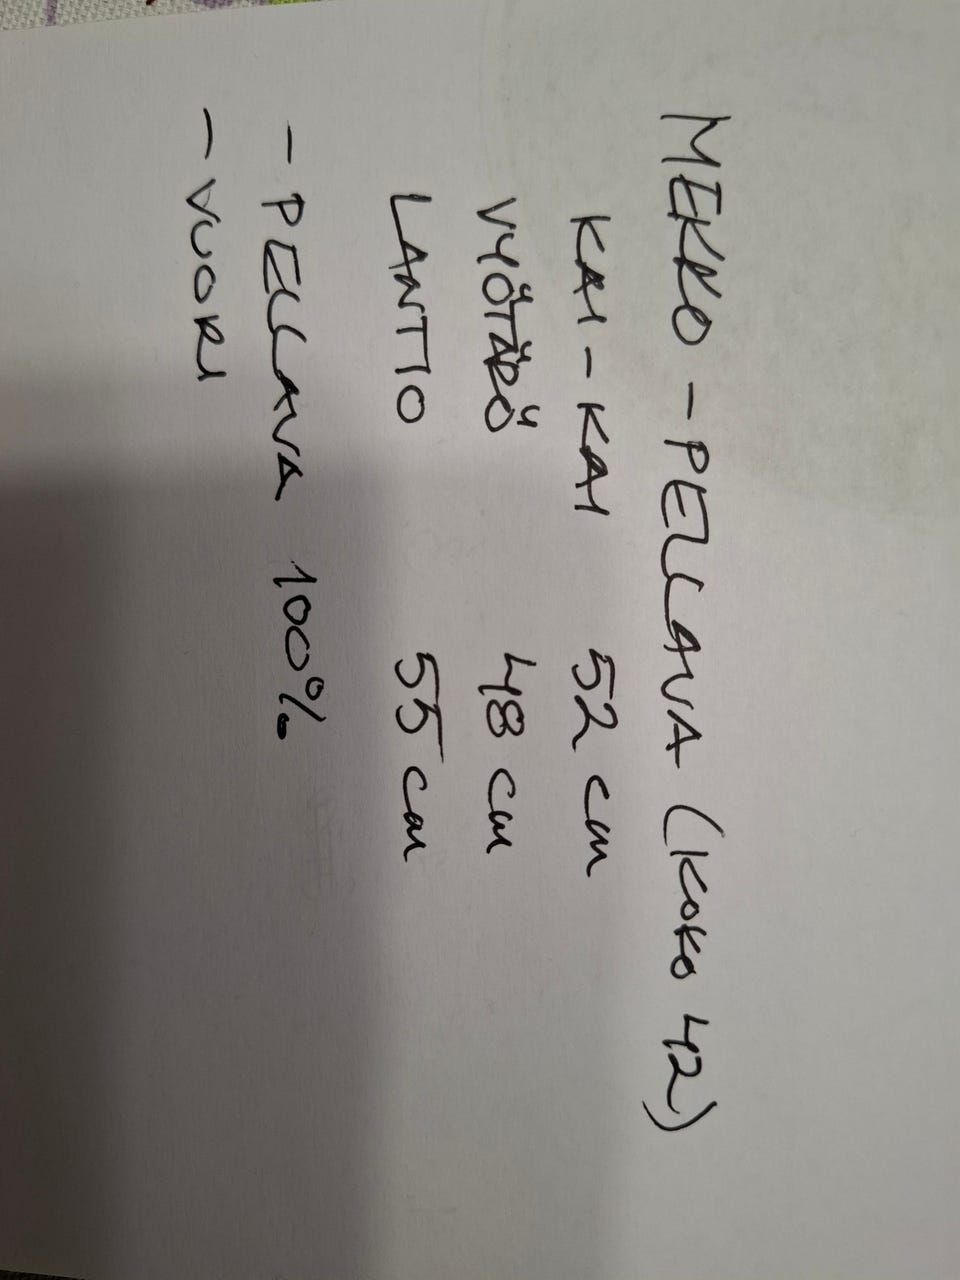 MEKKO - PELLAVA (KOKO 42)
KAI - KAI 52 cm
VYÖTÄRÖ 48 cm
LANTIO 55 cm
- PELLAVA 100%
- VUORI